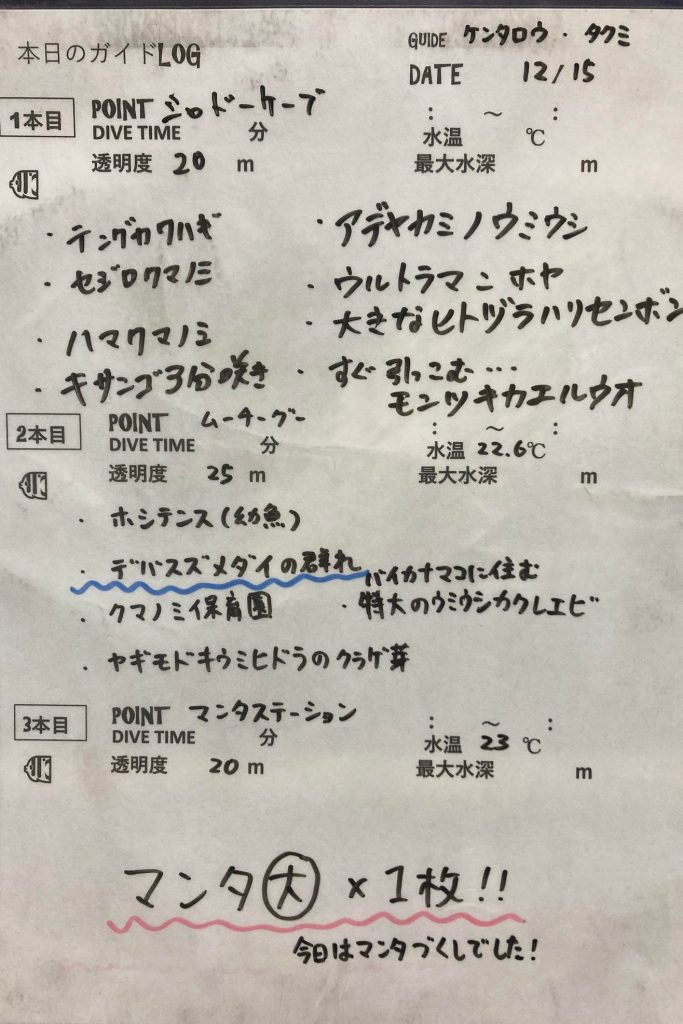 本日のガイドLOG
GUIDE ケンタロウ・タクミ
DATE 12/15
1本目
POINT シロドーケーブ
DIVE TIME 分
: ～ :
水温 ℃
透明度 20 m
最大水深 m
・テングカワハギ
・アデヤカミノウミウシ
・セジロクマノミ
・ウルトラマンホヤ
・大きなヒトヅラハリセンボン
・ハマクマノミ
・キサンゴ3分咲き
・すぐ引っこむ…
モンツキカエルウオ
2本目
POINT ムーチーグー
DIVE TIME 分
: ～ :
水温 22.6℃
透明度 25 m
最大水深 m
・ホシテンス(幼魚)
・デバスズメダイの群れ
・クマノミ保育園
バイカナマコに住む
・特大のウミウシカクレエビ
・ヤギモドキウミヒドラのクラゲ芽
3本目
POINT マンタステーション
DIVE TIME 分
: ～ :
水温 23 ℃
透明度 20 m
最大水深 m
マンタ大 × 1枚!!
今日はマンタづくしでした!